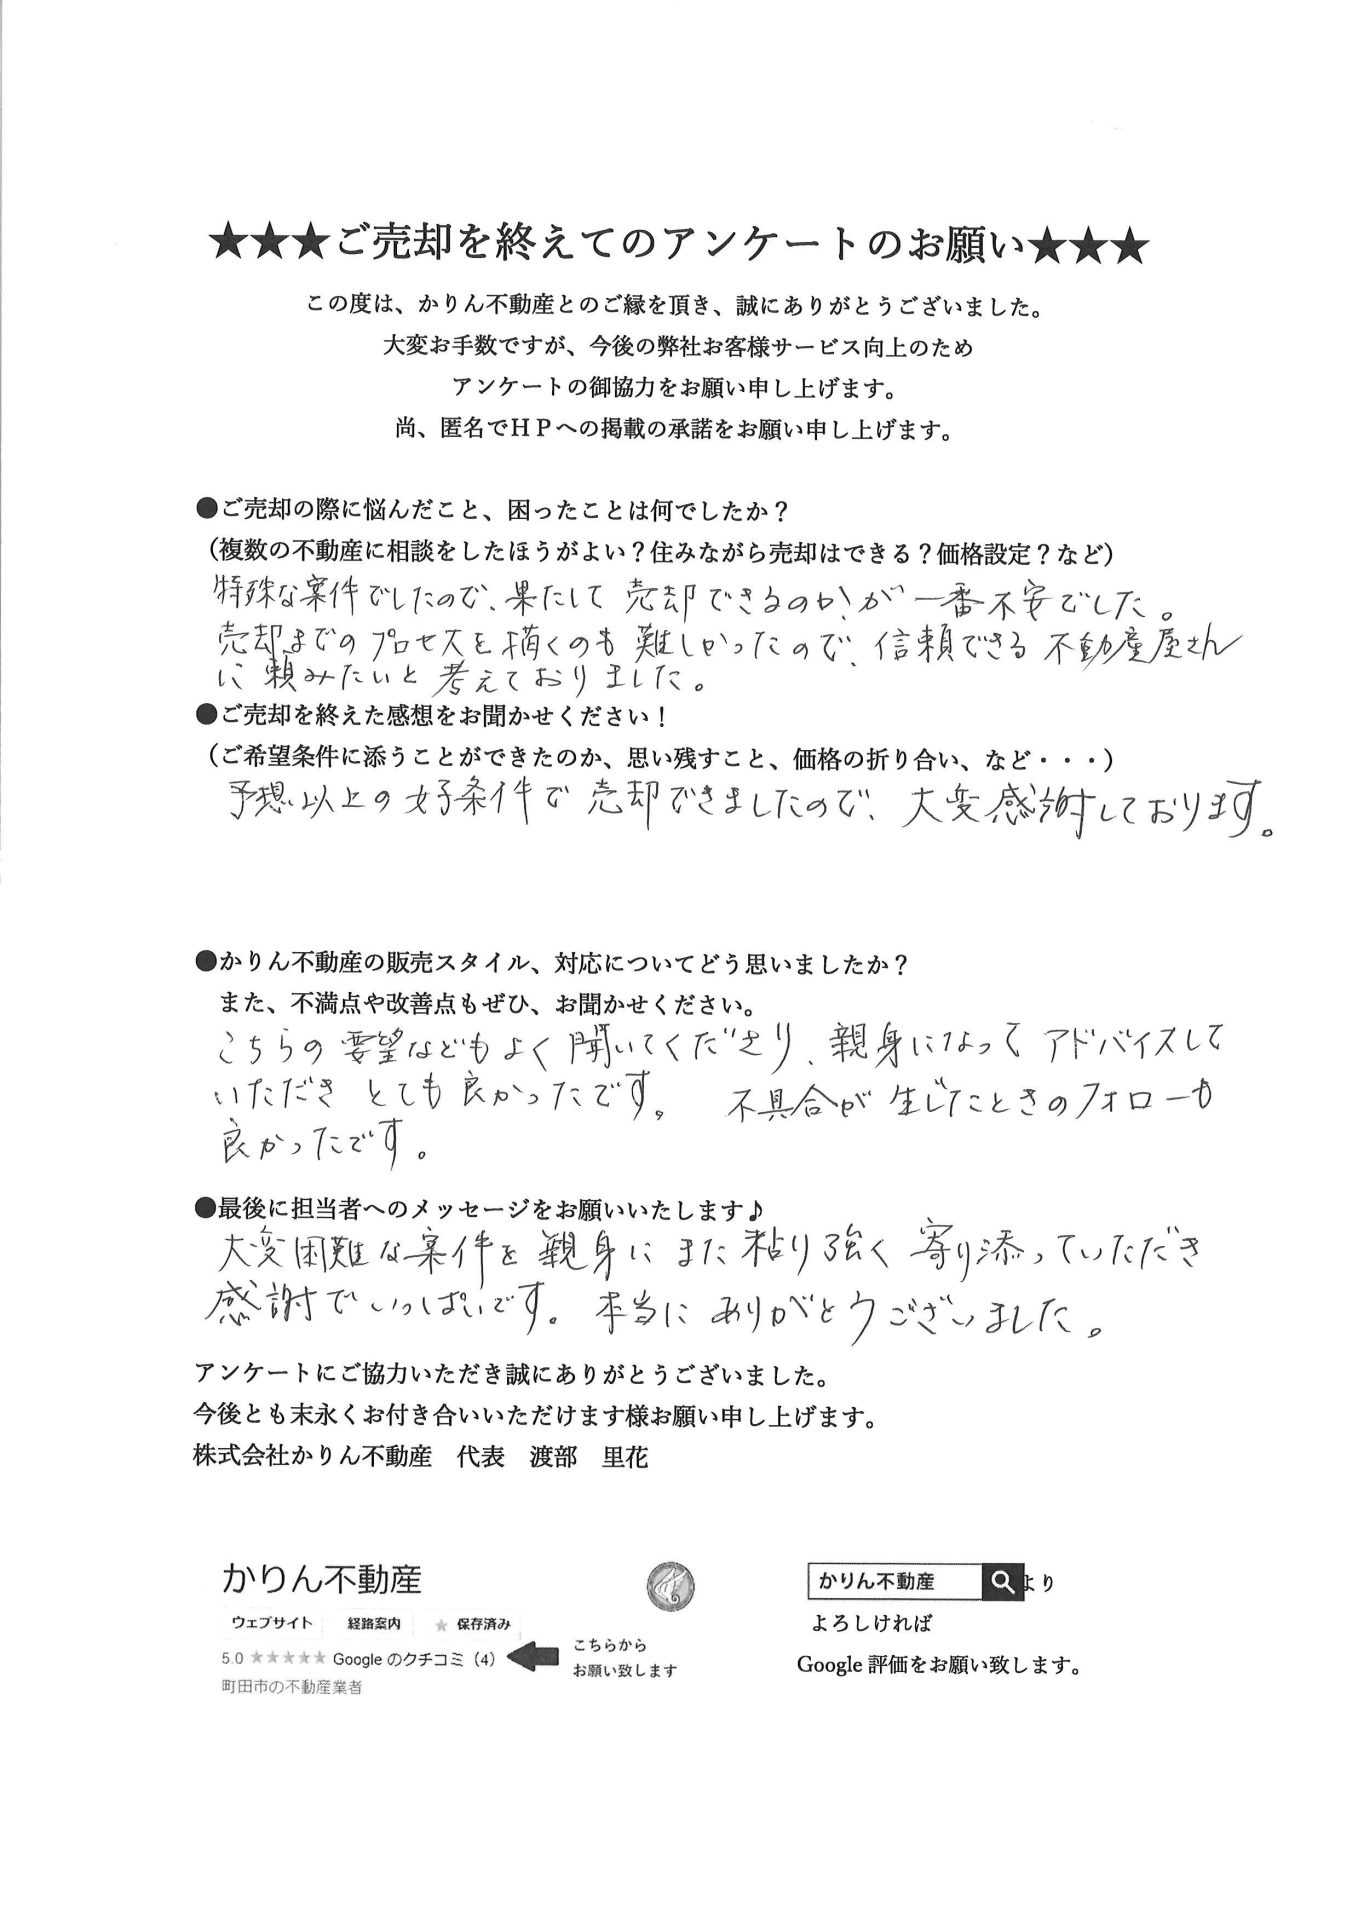 ★★★ご売却を終えてのアンケートのお願い★★★
この度は、かりん不動産とのご縁を頂き、誠にありがとうございました。
大変お手数ですが、今後の弊社お客様サービス向上のため
アンケートの御協力をお願い申し上げます。
尚、匿名でＨＰへの掲載の承諾をお願い申し上げます。
●ご売却の際に悩んだこと、困ったことは何でしたか？
（複数の不動産に相談をしたほうがよい？住みながら売却はできる？価格設定？など）
特殊な案件でしたので、果たして売却できるのか、が一番不安でした。
売却までのプロセスを描くのも難しかったので、信頼できる不動産屋さん
に頼みたいと考えておりました。
●ご売却を終えた感想をお聞かせください！
（ご希望条件に添うことができたのか、思い残すこと、価格の折り合い、など・・・）
予想以上の好条件で売却できましたので、大変感謝しております。
●かりん不動産の販売スタイル、対応についてどう思いましたか？
また、不満点や改善点もぜひ、お聞かせください。
こちらの要望などもよく聞いてくださり、親身になってアドバイスして
いただきとても良かったです。 不具合が生じたときのフォローも
良かったです。
●最後に担当者へのメッセージをお願いいたします♪
大変困難な案件を親身にまた粘り強く寄り添っていただき
感謝でいっぱいです。本当にありがとうございました。
アンケートにご協力いただき誠にありがとうございました。
今後とも末永くお付き合いいただけます様お願い申し上げます。
株式会社かりん不動産　代表　渡部　里花
かりん不動産
ウェブサイト 経路案内 ★ 保存済み
5.0 ★★★★★ Google のクチコミ（4）
町田市の不動産業者
こちらから
お願い致します
かりん不動産 より
よろしければ
Google 評価をお願い致します。